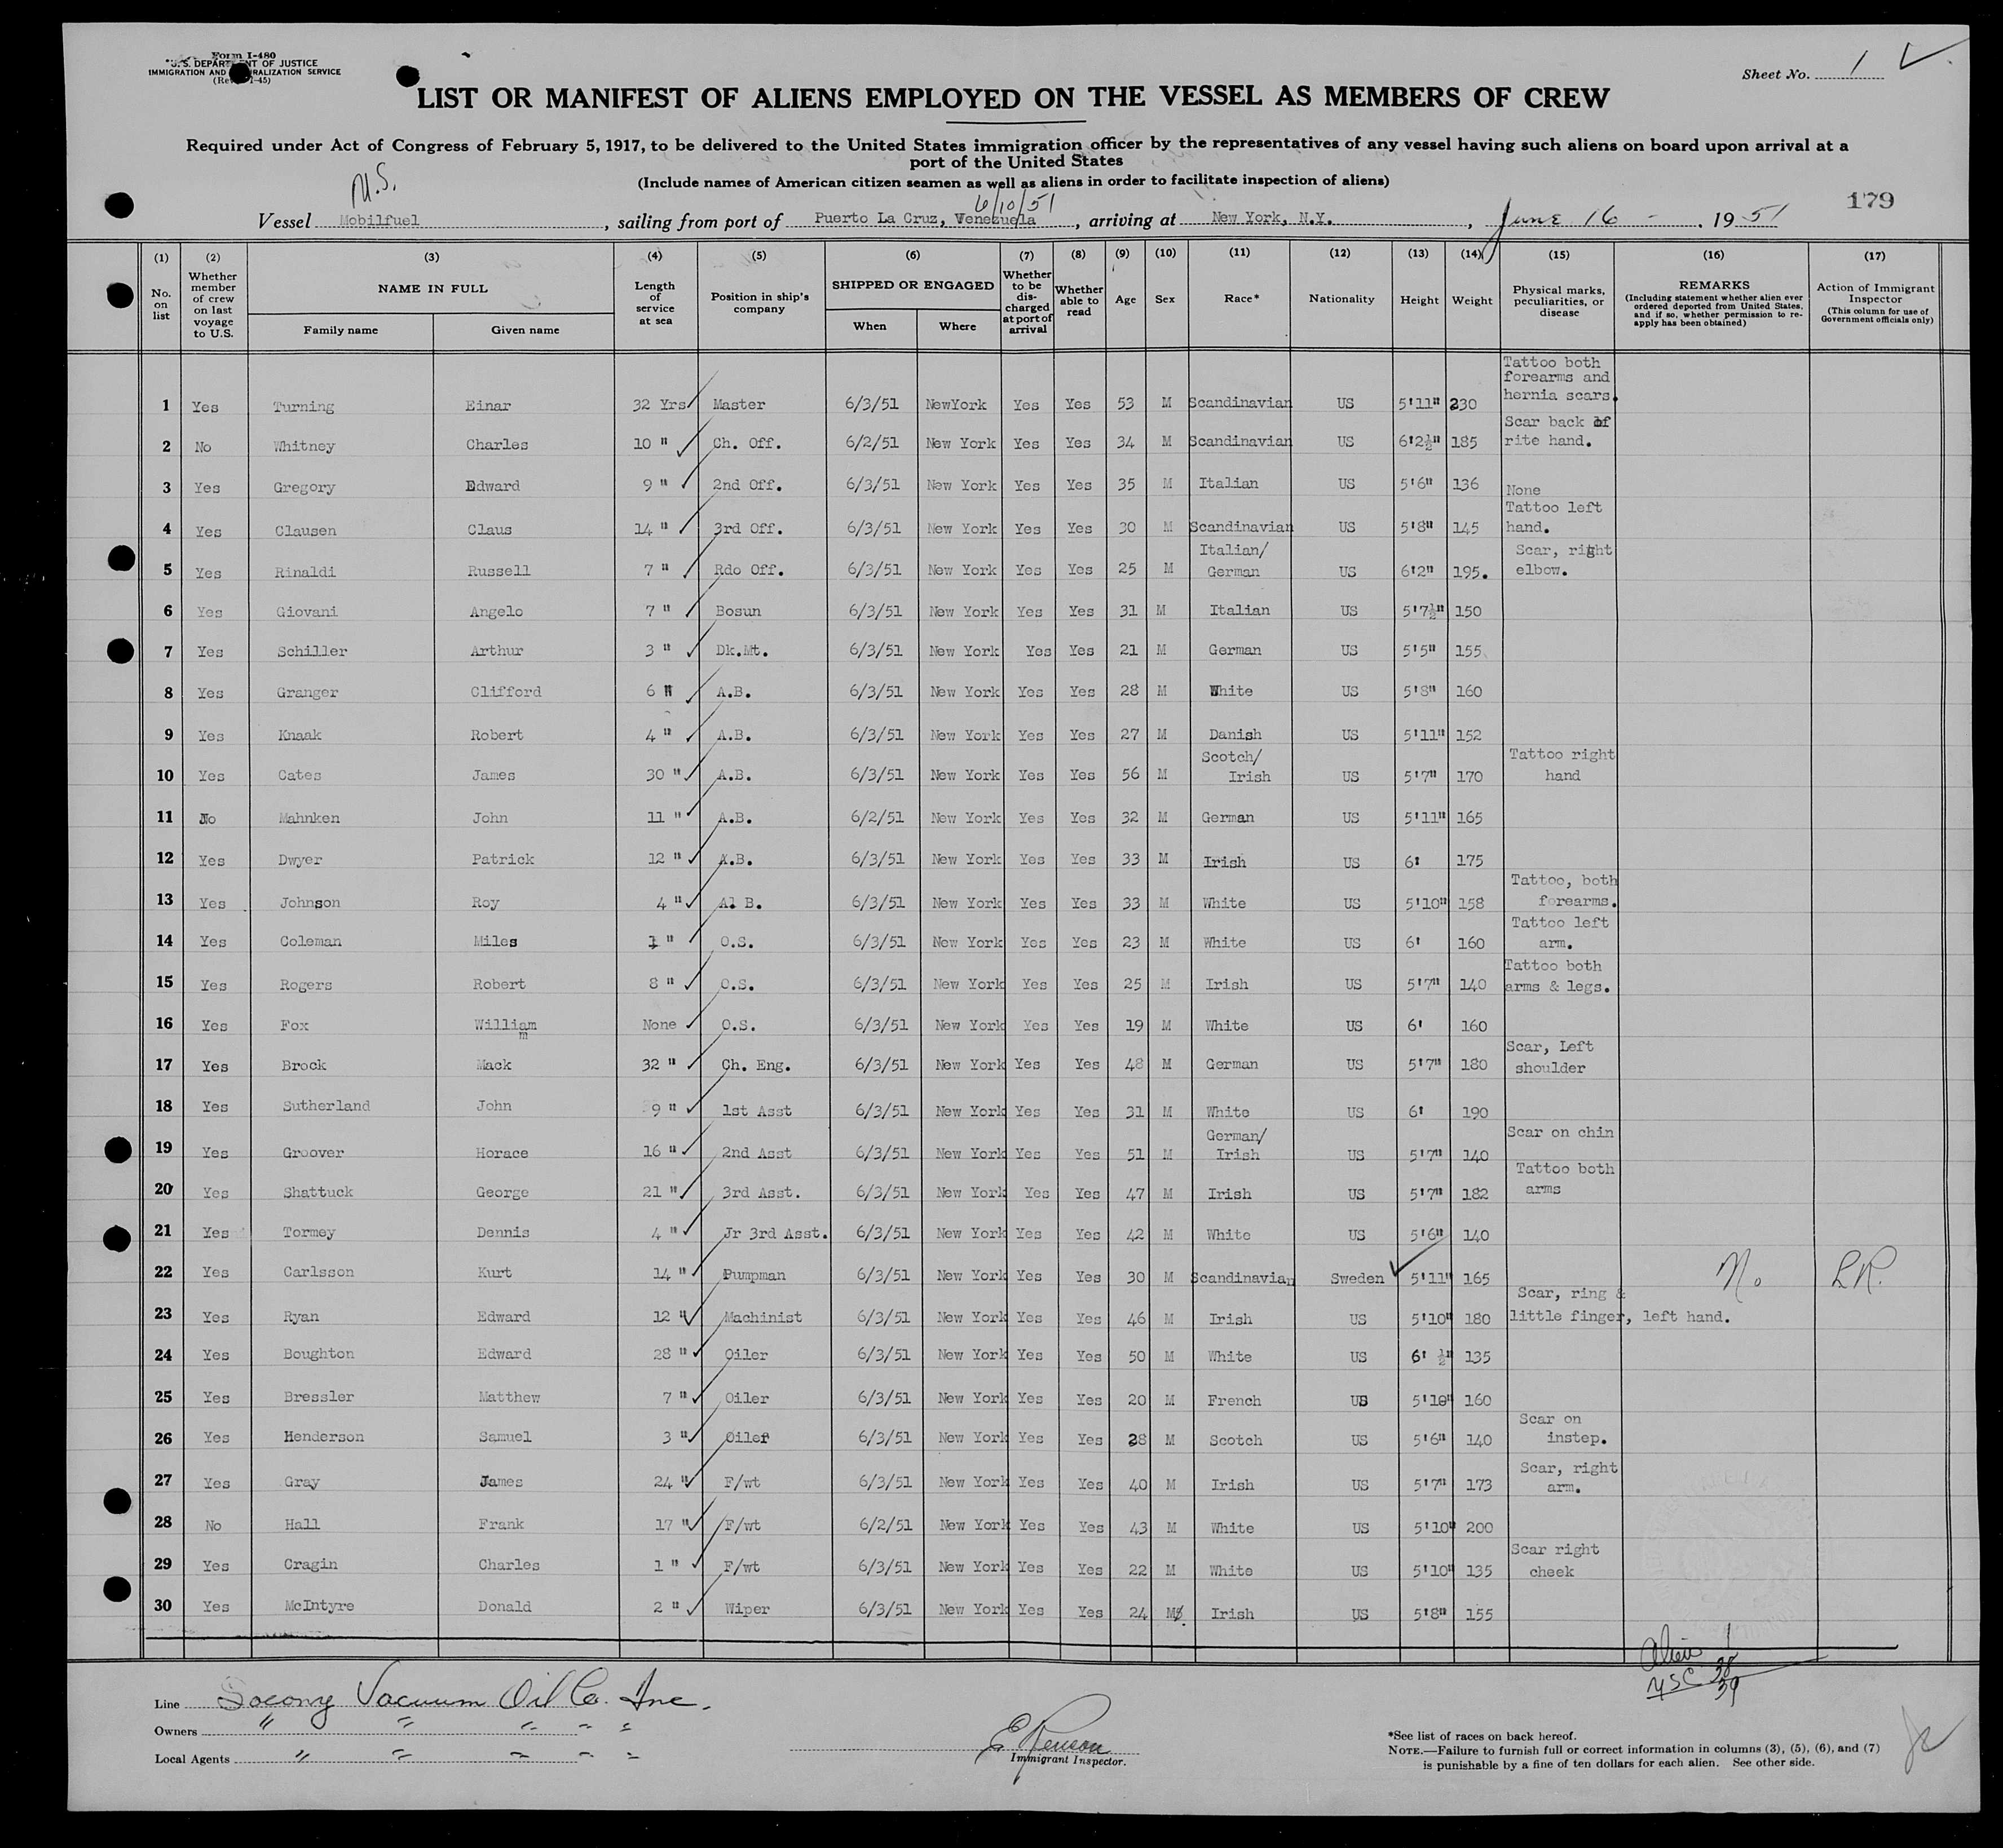 Form I-480
U.S. DEPARTMENT OF JUSTICE
IMMIGRATION AND NATURALIZATION SERVICE
(Rev. 1-45)
Sheet No. 1
LIST OR MANIFEST OF ALIENS EMPLOYED ON THE VESSEL AS MEMBERS OF CREW
Required under Act of Congress of February 5, 1917, to be delivered to the United States immigration officer by the representatives of any vessel having such aliens on board upon arrival at a
port of the United States
(Include names of American citizen seamen as well as aliens in order to facilitate inspection of aliens)
M.S.
6/10/51
179
Vessel Mobilfuel, sailing from port of Puerto La Cruz, Venezuela, arriving at New York, N.Y., June 16 - 1951
(1) (2) (3) (4) (5) (6) (7) (8) (9) (10) (11) (12) (13) (14) (15) (16) (17)
No. on list
Whether member of crew on last voyage to U.S.
NAME IN FULL
Family name Given name
Length of service at sea
Position in ship's company
SHIPPED OR ENGAGED
When Where
Whether to be discharged at port of arrival
Whether able to read
Age
Sex
Race*
Nationality
Height
Weight
Physical marks, peculiarities, or disease
REMARKS
(Including statement whether alien ever ordered deported from United States, and if so, whether permission to reapply has been obtained)
Action of Immigrant Inspector
(This column for use of Government officials only)
1 Yes Turning Einar 32 Yrs Master 6/3/51 NewYork Yes Yes 53 M Scandinavian US 5'11" 230 Tattoo both forearms and hernia scars.
2 No Whitney Charles 10 " Ch. Off. 6/2/51 New York Yes Yes 34 M Scandinavian US 6'2½" 185 Scar back of rite hand.
3 Yes Gregory Edward 9 " 2nd Off. 6/3/51 New York Yes Yes 35 M Italian US 5'6" 136 None
4 Yes Clausen Claus 14 " 3rd Off. 6/3/51 New York Yes Yes 30 M Scandinavian US 5'8" 145 Tattoo left hand.
5 Yes Rinaldi Russell 7 " Rdo Off. 6/3/51 New York Yes Yes 25 M Italian/ German US 6'2" 195. Scar, right elbow.
6 Yes Giovani Angelo 7 " Bosun 6/3/51 New York Yes Yes 31 M Italian US 5'7½" 150
7 Yes Schiller Arthur 3 " Dk.Mt. 6/3/51 New York Yes Yes 21 M German US 5'5" 155
8 Yes Granger Clifford 6 " A.B. 6/3/51 New York Yes Yes 28 M White US 5'8" 160
9 Yes Knaak Robert 4 " A.B. 6/3/51 New York Yes Yes 27 M Danish US 5'11" 152
10 Yes Cates James 30 " A.B. 6/3/51 New York Yes Yes 56 M Scotch/ Irish US 5'7" 170 Tattoo right hand
11 No Mahnken John 11 " A.B. 6/2/51 New York Yes Yes 32 M German US 5'11" 165
12 Yes Dwyer Patrick 12 " A.B. 6/3/51 New York Yes Yes 33 M Irish US 6' 175
13 Yes Johnson Roy 4 " Al B. 6/3/51 New York Yes Yes 33 M White US 5'10" 158 Tattoo, both forearms.
14 Yes Coleman Miles 1 " O.S. 6/3/51 New York Yes Yes 23 M White US 6' 160 Tattoo left arm.
15 Yes Rogers Robert 8 " O.S. 6/3/51 New York Yes Yes 25 M Irish US 5'7" 140 Tattoo both arms & legs.
16 Yes Fox William m None O.S. 6/3/51 New York Yes Yes 19 M White US 6' 160
17 Yes Brock Mack 32 " Ch. Eng. 6/3/51 New York Yes Yes 48 M German US 5'7" 180 Scar, Left shoulder
18 Yes Sutherland John 9 " 1st Asst 6/3/51 New York Yes Yes 31 M White US 6' 190
19 Yes Groover Horace 16 " 2nd Asst 6/3/51 New York Yes Yes 51 M German/ Irish US 5'7" 140 Scar on chin
20 Yes Shattuck George 21 " 3rd Asst. 6/3/51 New York Yes Yes 47 M Irish US 5'7" 182 Tattoo both arms
21 Yes Tormey Dennis 4 " Jr 3rd Asst. 6/3/51 New York Yes Yes 42 M White US 5'6" 140
22 Yes Carlsson Kurt 14 " Pumpman 6/3/51 New York Yes Yes 30 M Scandinavian Sweden 5'11" 165 No LR.
23 Yes Ryan Edward 12 " Machinist 6/3/51 New York Yes Yes 46 M Irish US 5'10" 180 Scar, ring & little finger, left hand.
24 Yes Boughton Edward 28 " Oiler 6/3/51 New York Yes Yes 50 M White US 6' ½" 135
25 Yes Bressler Matthew 7 " Oiler 6/3/51 New York Yes Yes 20 M French US 5'10" 160
26 Yes Henderson Samuel 3 " Oiler 6/3/51 New York Yes Yes 28 M Scotch US 5'6" 140 Scar on instep.
27 Yes Gray James 24 " F/wt 6/3/51 New York Yes Yes 40 M Irish US 5'7" 173 Scar, right arm.
28 No Hall Frank 17 " F/wt 6/2/51 New York Yes Yes 43 M White US 5'10" 200
29 Yes Cragin Charles 1 " F/wt 6/3/51 New York Yes Yes 22 M White US 5'10" 135 Scar right cheek
30 Yes McIntyre Donald 2 " Wiper 6/3/51 New York Yes Yes 24 M Irish US 5'8" 155
Alien 1
USC 38
39
Line Socony Vacuum Oil Co. Inc.
Owners " " " " "
Local Agents " " " " "
Immigrant Inspector.
*See list of races on back hereof.
NOTE.—Failure to furnish full or correct information in columns (3), (5), (6), and (7)
is punishable by a fine of ten dollars for each alien. See other side.